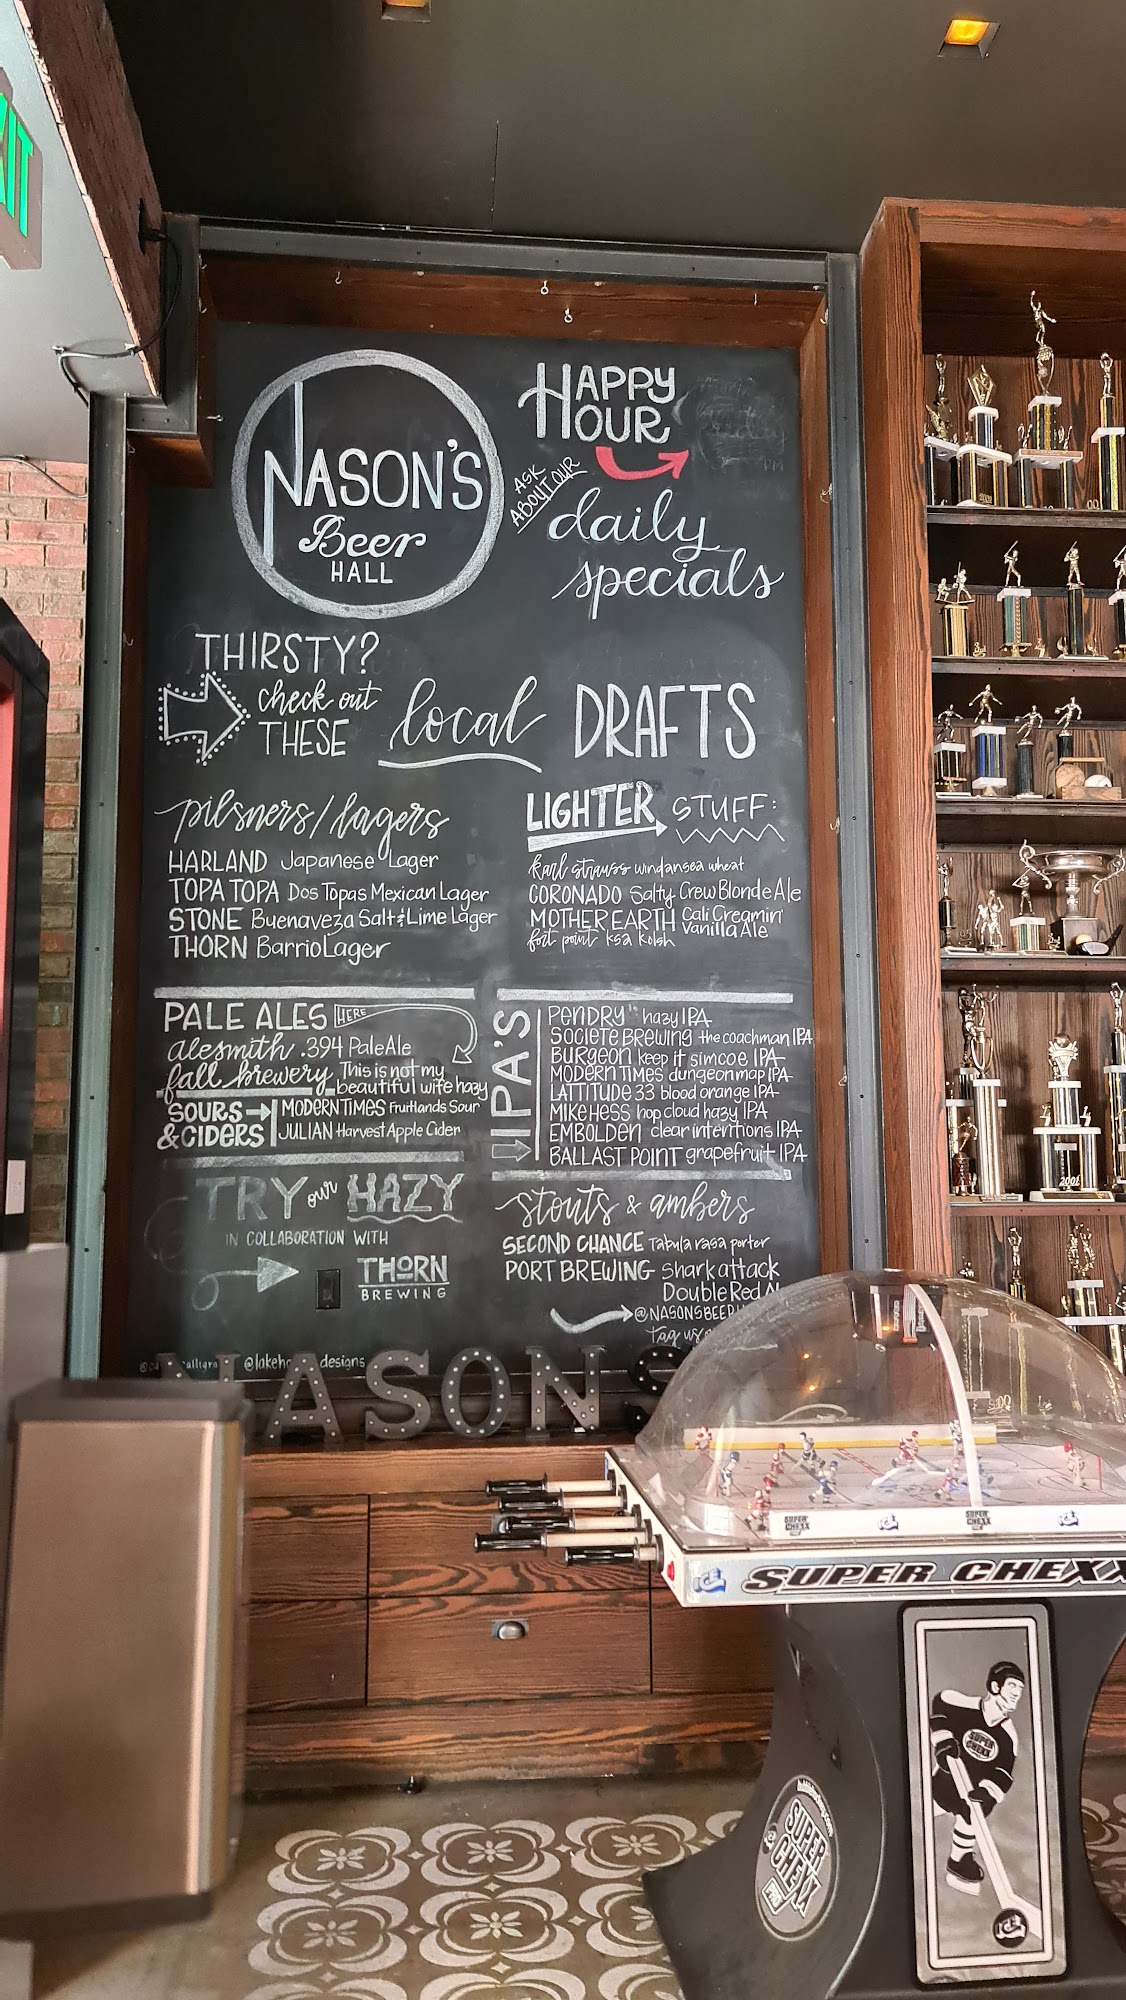 NASON'S
Beer
HALL
HAPPY
HOUR
ASK
ABOUT OUR
daily
specials
THIRSTY?
check out
THESE
local DRAFTS
pilsners/lagers
HARLAND Japanese Lager
TOPA TOPA Dos Topas Mexican Lager
STONE Buenaveza Salt & Lime Lager
THORN Barrio Lager
LIGHTER STUFF:
karl strauss windansea wheat
CORONADO Salty Crew Blonde Ale
MOTHER EARTH Cali Creamin'
Vanilla Ale
fort point ksa kolsh
PALE ALES HERE
alesmith .394 Pale Ale
fall brewery This is not my
beautiful wife hazy
SOURS
& CIDERS
MODERN TIMES Fruitlands Sour
JULIAN Harvest Apple Cider
IPA'S
PENDRY hazy IPA
SOCIETE BREWING the coachman IPA
BURGEON keep it simcoe IPA
MODERN TIMES dungeon map IPA
LATTITUDE 33 blood orange IPA
MIKE HESS hop cloud hazy IPA
EMBOLDEN clear intentions IPA
BALLAST POINT grapefruit IPA
TRY our HAZY
IN COLLABORATION WITH
THORN
BREWING
stouts & ambers
SECOND CHANCE Tabula rasa porter
PORT BREWING Shark attack
Double Red
@NASONSBEER
tag us
designs
NASON'S
SUPER CHEXX
ICE
SUPER CHEXX
ICE
ICE SUPER CHEXX
SUPER
CHEXX
PRO
ICE
2001